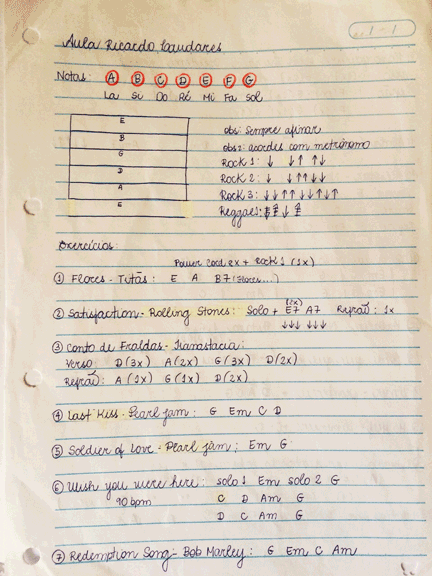 1-1
Aula Ricardo Caudares
Notas: A B C D E F G
La Si Do Ré Mi Fa Sol
E
B
G
D
A
E
obs: Sempre afinar
obs2: acordes com metrônomo
Rock 1: ↓ ↓↑ ↑↓
Rock 2: ↓ ↓↑↑↓↓
Rock 3: ↓↓↑↑↓↓↑↓↑
Reggae:
Exercícios:
Power Cord 2x + Rock 1 (1x)
① Flores - Titãs: E A B7 (Flores...)
② Satisfaction - Rolling Stones: Solo + E7 A7 Refrão: 1x
(2x)
↓↓↓ ↓↓↓
③ Conto de Fraldas - Tianastacia:
Verso: D(3x) A(2x) G(3x) D(2x)
Refrão: A(1x) G(1x) D(2x)
④ Last Kiss - Pearl Jam: G Em C D
⑤ Soldier of Love - Pearl Jam: Em G
⑥ Wish you were here: solo 1 Em solo 2 G
90 bpm C D Am G
D C Am G
⑦ Redemption Song - Bob Marley: G Em C Am